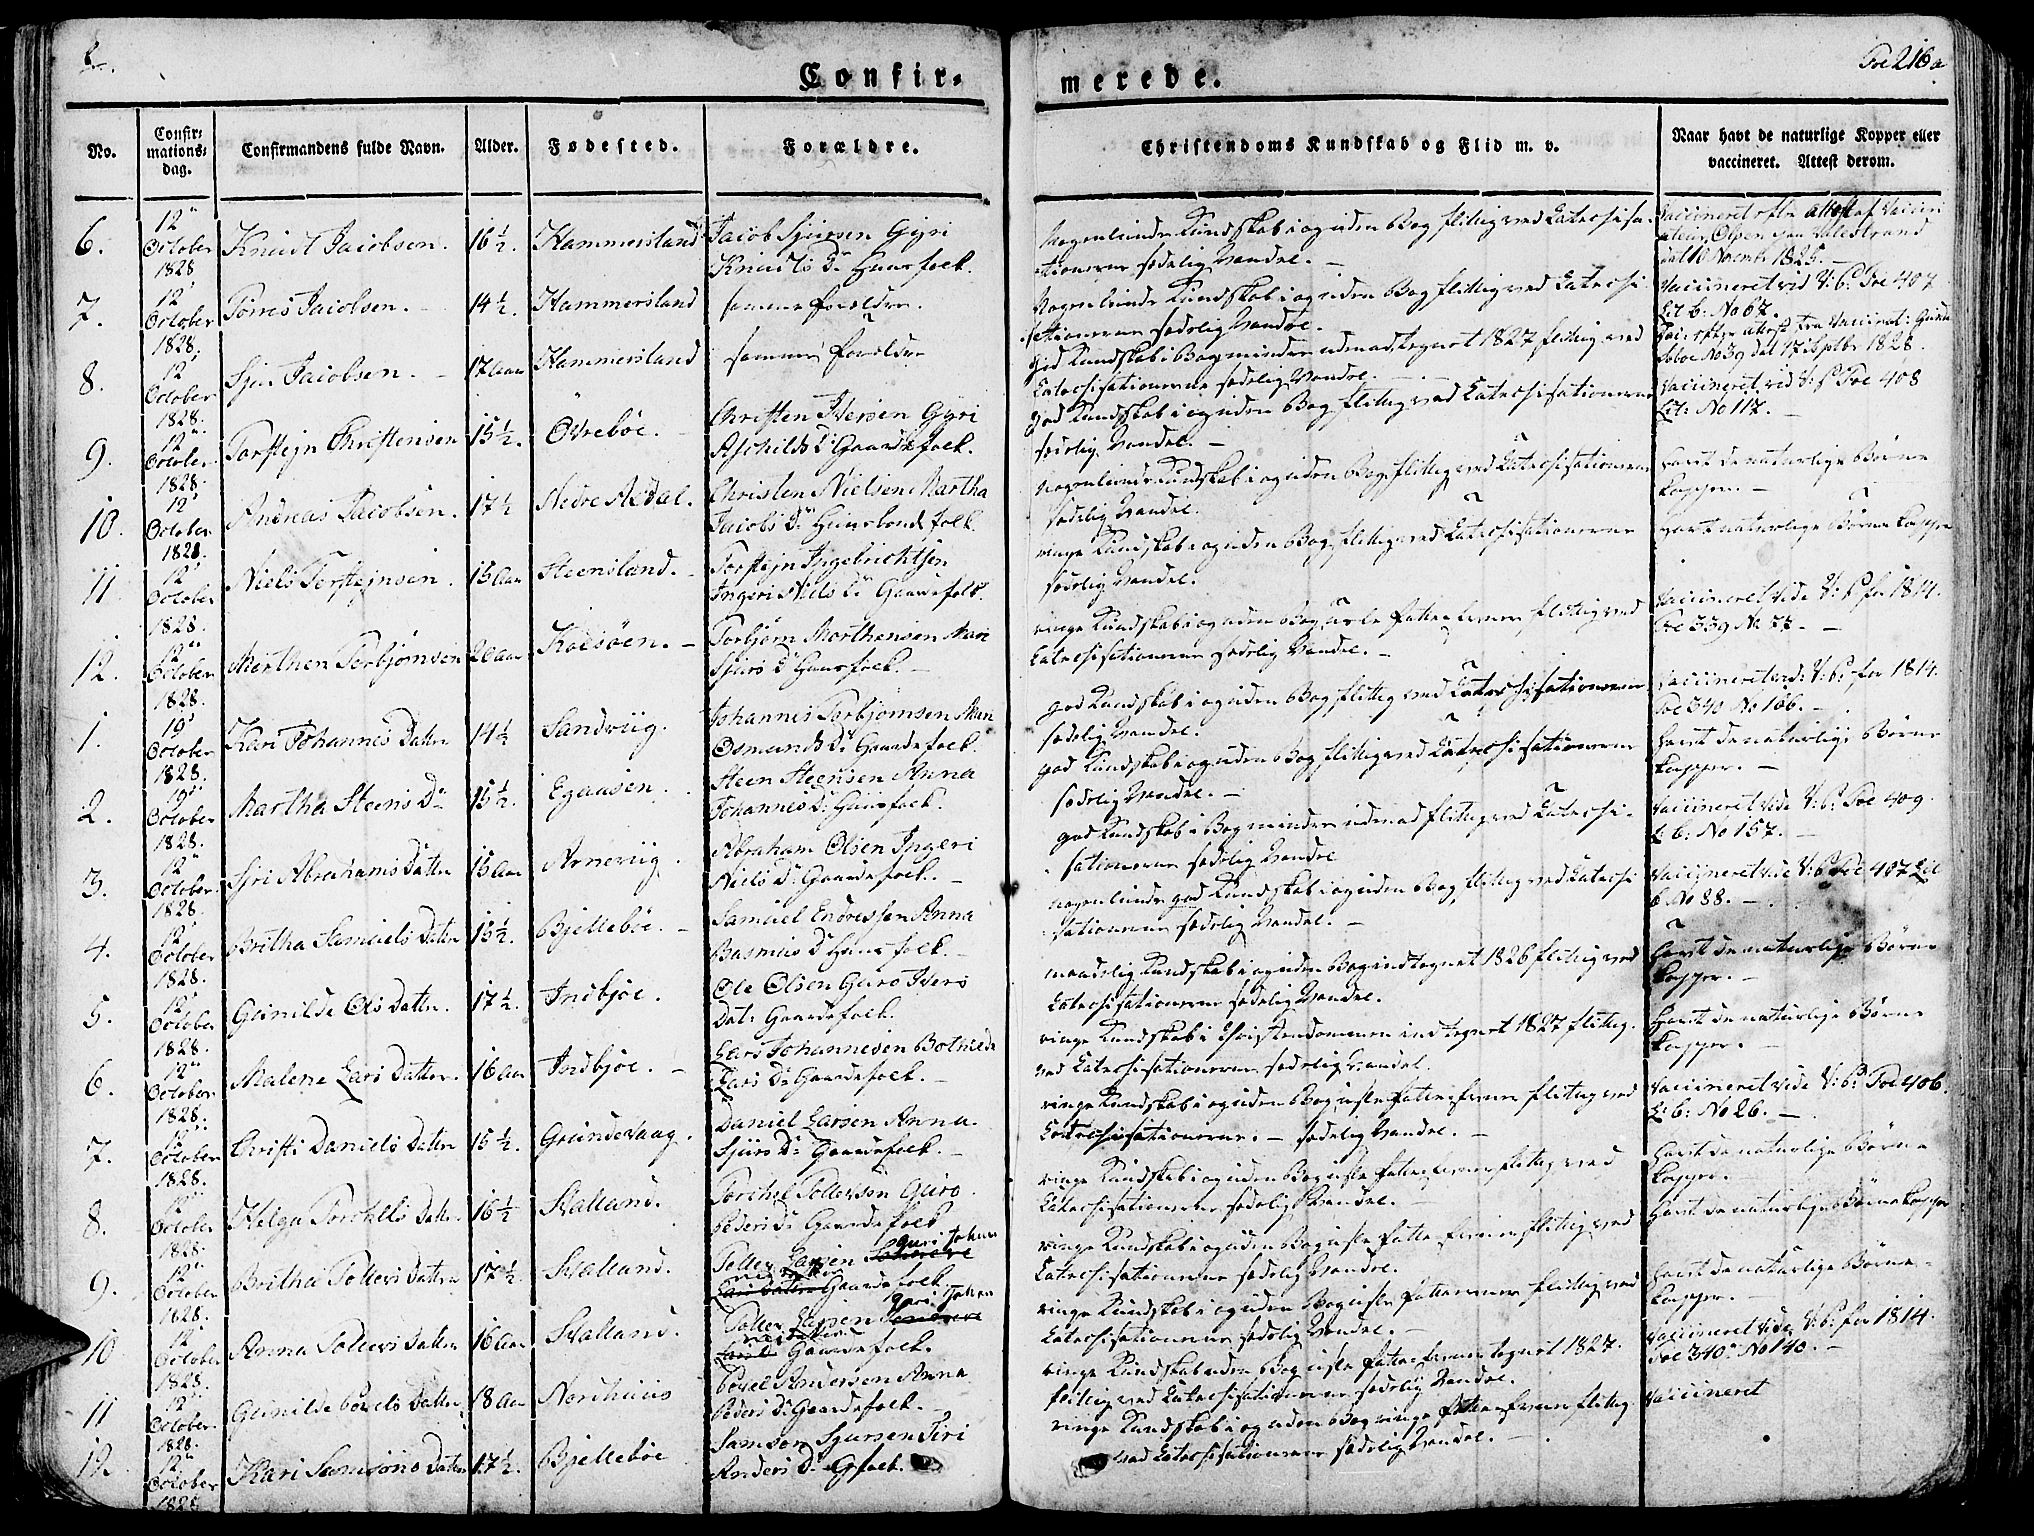 Confirmerede.
Foe 216 a
No.
Confirmationsdag.
Confirmandens fulde Navn.
Alder.
Fødested.
Forældre.
Christendoms Kundskab og Flid m. v.
Naar havt de naturlige Kopper eller vaccineret. Attest derom.
6. 12 October 1828 Knud Jacobsen. 16½. Hammersland Jacob Sjursen Gyri
Knuds Dr Huusfolk.
Kundskab i og uden Bog flittig ved Catechisationerne sædelig Vandel.
7. 12 October 1828. Tørres Jacobsen. 14½. Hammersland samme Forældre.
Kundskab i og uden Bog flittig ved Catechisationerne sædelig Vandel.
Vaccineret vid V: b: Foe 407
Lit b: No 67.
8. 12 October 1828. Sjur Jacobsen. 17 Aar Hammersland samme Forældre
god Kundskab i Bog mindre udenad tegnet 1827 flittig ved
Catechisationerne sædelig Vandel.
No 39 dat 17 Septbr 1828.
9. 12 October 1828. Torstejn Christensen 15½. Øvrebøe. Christen Iversen Gyri
Aschilds Dr Gaardefolk.
god Kundskab i og uden Bog flittig ved Catechisationerne
sædelig Vandel.
Vaccineret vid V: P Foe 408
Lit: No 117.
10. 12 October 1828. Andreas Jacobsen. 17½ Nedre Aadal. Christen Nielsen Martha
Jacobs Dr Huusbonds folk.
Kundskab i og uden Bog flittig ved Catechisationerne
sædelig Vandel.
havt de naturlige Børne
kopper.
11. 12 October 1828. Niels Torstejnsen. 15 Aar Steensland. Torstejn Ingebrichtsen
Ingeri Niels Dr Gaardefolk.
ringe Kundskab i og uden Bog flittig ved Catechisationerne
sædelig Vandel.
havt naturlige Børne kopper
12. 12 October 1828. Morthen Torbjørnsen 20 Aar Koesøen. Torbjørn Morthensen Mari
Sjurs Dr Huusfolk.
ringe Kundskab i og uden Bog flittig ved
Catechisationerne sædelig Vandel.
Vaccineret vide V: P for 1814.
Foe 339 No 77.
1. 19 October 1828. Kari Johannes Datter 14½ Sandviig. Johannes Torbjørnsen Mari
Osmunds Dr Gaardefolk.
god Kundskab i og uden Bog flittig ved Catechisationerne
sædelig Vandel.
Vaccineret vid: V: b: for 1814.
Foe 340 No 106.
2. 19 October 1828. Martha Steens Dr 15½. Egaasen. Steen Steensen Anna
Johannes Dr Huusfolk.
god Kundskab i og uden Bog flittig ved Catechisationerne
sædelig Vandel.
havt de naturlige Børne
kopper.
3. 12 October 1828. Siri Abrahams Datter 15 Aar Arneviig. Abraham Olsen Ingeri
Niels Dr Gaardefolk.
god Kundskab i Bog mindre udenad flittig ved Catechisationerne sædelig Vandel
Vaccineret vide V: b: Foe 409.
L: b: No 157.
4. 12 October 1828. Britha Samuels Datter 15½. Bjellebøe. Samuel Endressen Anna
Rasmus Dr Huusfolk.
god Kundskab i og uden Bog flittig ved Catechisationerne sædelig Vandel.
Vaccineret vide V: b Foe 407 Lit
b No 88.
5. 12 October 1828. Gunilde Ols Datter. 17½. Indbjøe. Ole Olsen Guro Ivers
Dat: Gaardefolk.
maadelig Kundskab i og uden Bog indtegnet 1826 flittig ved
Catechisationerne sædelig Vandel.
havt de naturlige Børne
kopper.
6. 12 October 1828. Malene Lars Datter. 16 Aar Indbjøe. Lars Johannesen Bothilde
Lars Dr Gaardefolk.
ringe Kundskab i Christendommen indtegnet 1827 flittig
ved Catechisationerne sædelig Vandel.
havt de naturlige Børne
kopper.
7. 12 October 1828. Christi Daniels Datter 15½. Grundevaag. Daniel Larsen Anna
Sjurs Dr Gaardefolk.
ringe Kundskab i og uden Bog flittig ved
Catechisationerne. sædelig Vandel.
Vaccineret vide V: b: Foe 406
Lit b: No 26.
8. 12 October 1828. Helga Torchels Datter. 16½ Stalland. Torchel Tollevsen Guro
Peders Dr Gaardefolk
ringe Kundskab i og uden Bog flittig ved
Catechisationerne sædelig Vandel.
havt de naturlige Børne
kopper.
9. 12 October 1828. Britha Tollevs Datter 17½. Stalland. Tollev Larsen Guri Johan
Gaardefolk.
ringe Kundskab i og uden Bog flittig ved
Catechisationerne sædelig Vandel.
havt de naturlige Børne kopper
10 12 October 1828. Anna Tollevs Datter 16 Aar Stalland. Tollev Larsen Guri Johan
Gaardefolk.
ringe Kundskab i og uden Bog flittig ved
Catechisationerne sædelig Vandel.
havt de naturlige Børne
kopper.
11 12 October 1828. Gunilde Povels Datter 18 Aar Nordhuus Povel Andersen Anna
Peders Dr Gaardefolk.
ringe Kundskab uden Bog tegnet 1827.
flittig ved Catechisationerne sædelig Vandel.
Vaccineret vide V: b: for 1814.
Foe 340 No 140.
12. 12 October 1828 Kari Samsons Datter 17½. Bjellebøe Samson Sjursen Siri
Anders Dr Gfolk.
ringe Kundskab i og uden Bog flittig
ved Catechisationerne sædelig Vandel.
Vaccineret